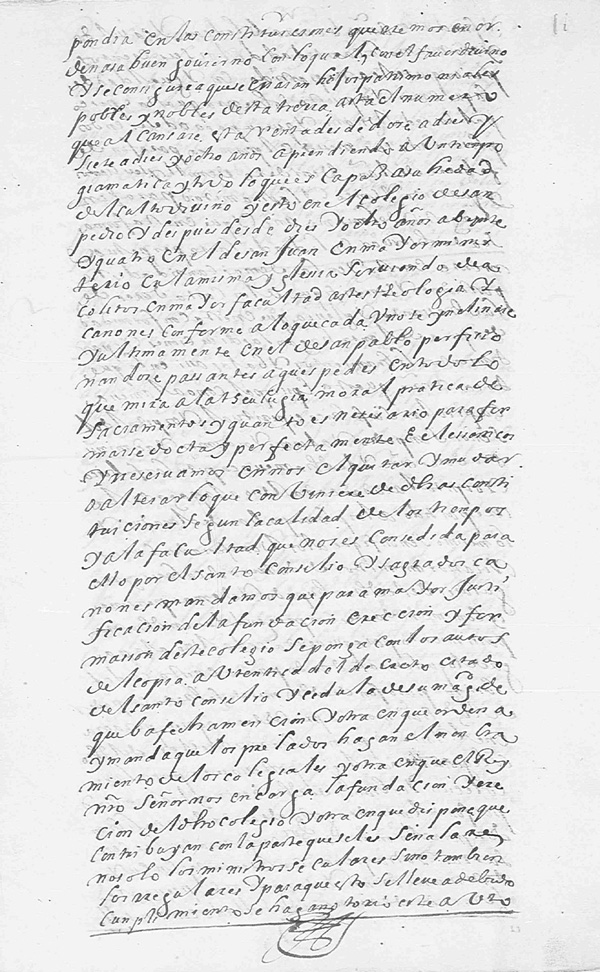 pondra en las constituciones que haremos en or
den a su buen govierno con lo qual y con el favor divino
se consigue a que se criaran hijos patrimoniales
pobles y nobles de esta tierra asta el numero
que alcansare esta renta desde dose a dies y
siete a dies y ocho años aprendiendo a un tiempo
gramatica y todo lo que es capas a su hedad
del culto divino y esto en el colegio de san
pedro y despues desde dies y ocho años a beynte
y quatro en el de san Juan en mayor minis
terio en la misma yglesia sirviendo de a
colitos en mayor facultad artes theologia y
canones conforme a lo que cada uno se ynclinare
y ultimamente en el de san pablo perficio
nandose passantes a quespedes en todo lo
que mira a la theulugia moral pratica de
sacramentos y quanto es nesesario para for
marse docta y perfectamente eclessiasticos
y reservamos en nos el quitar y mudar
o alterar lo que conviniere de dhas consti
tuiciones segun la calidad de los tiempos
y a la facultad que nos es consedida para
ello por el santo consilio y sagrados ca
nones mandamos que para mayor justi
ficacion de la fundacion ereccion y for
masion deste colegio se ponga con los autos
del copia autentica del decreto citado
del santo consilio y cedula de su magd. de
que ba fecha mencion y otra en que ordena
y manda que los prelados hagan el nombra
miento de los colegiales y otra en que el Rey
nro señor nos encarga la fundacion y ere
cion del dho colegio y otra en que dispone que
contribuyan con la parte que se les señalare
no solo los ministros seculares sino tambien
los regulares y para que esto se lleve a debido
cumplimiento se haga notorio este auto